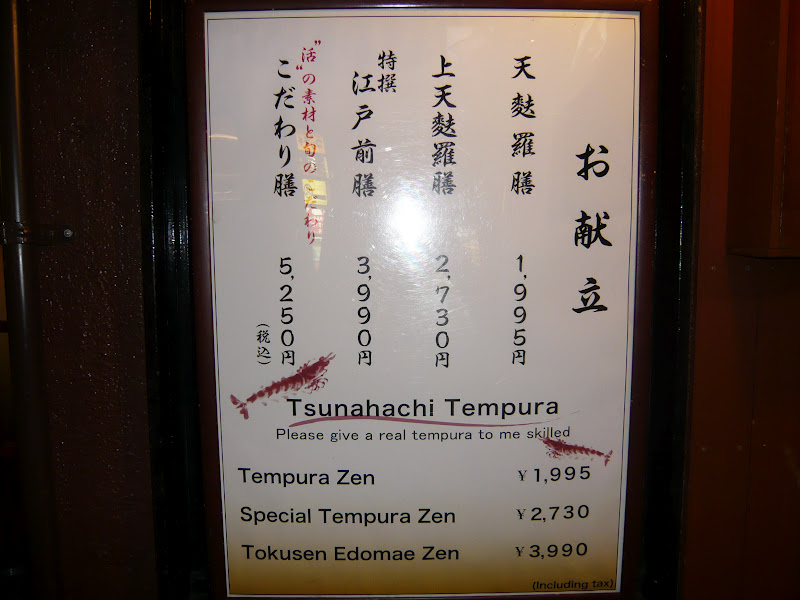 お献立
天麩羅膳 1,995円
上天麩羅膳 2,730円
特撰
江戸前膳 3,990円
"活"の素材と旬のこだわり
こだわり膳 5,250円
(税込)
Tsunahachi Tempura
Please give a real tempura to me skilled
Tempura Zen ¥1,995
Special Tempura Zen ¥2,730
Tokusen Edomae Zen ¥3,990
(Including tax)